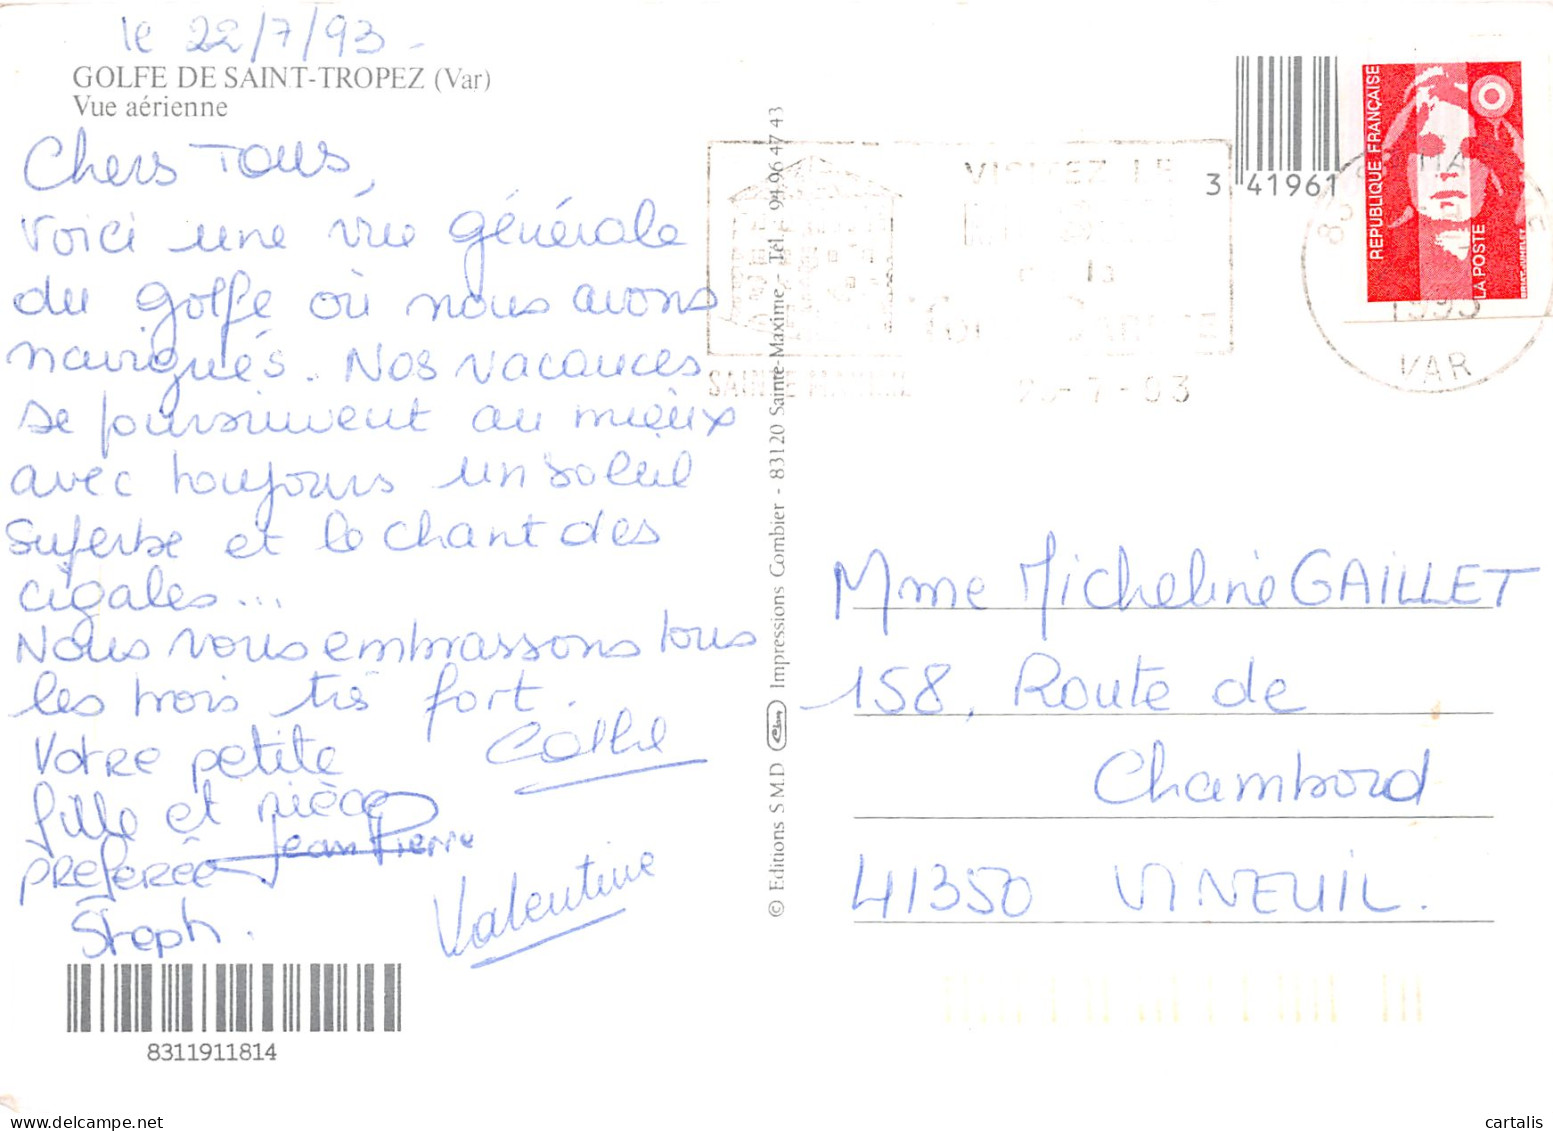 le 22/7/93
GOLFE DE SAINT-TROPEZ (Var)
Vue aérienne
Chers Tous,
Voici une vue générale
du golfe où nous avons
navigués. Nos vacances
se poursuivent au mieux
avec toujours un soleil
superbe et le chant des
cigales...
Nous vous embrassons tous
les trois très fort.
Votre petite
fille et nièce
préférée
Steph.
Jean Pierre
Valentine
8311911814
© Editions S M D Impressions Combier - 83120 Sainte-Maxime - Tél. 94 96 47 43
VISITEZ LE
de la
SAINTE MAXIME
-7-93
3 41961
REPUBLIQUE FRANÇAISE
LA POSTE
1993
VAR
Mme Micheline GAILLET
158, Route de
Chambord
41350 VINEUIL.
cartalis